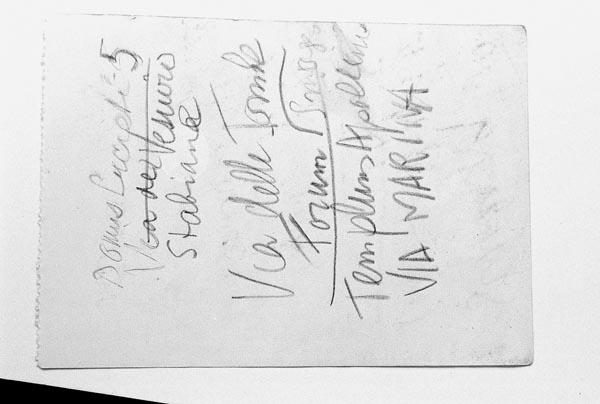 Domus 5
Via del Vesuvio
Stabiana
Via delle Tombe
Forum
Templum
VIA MARINA